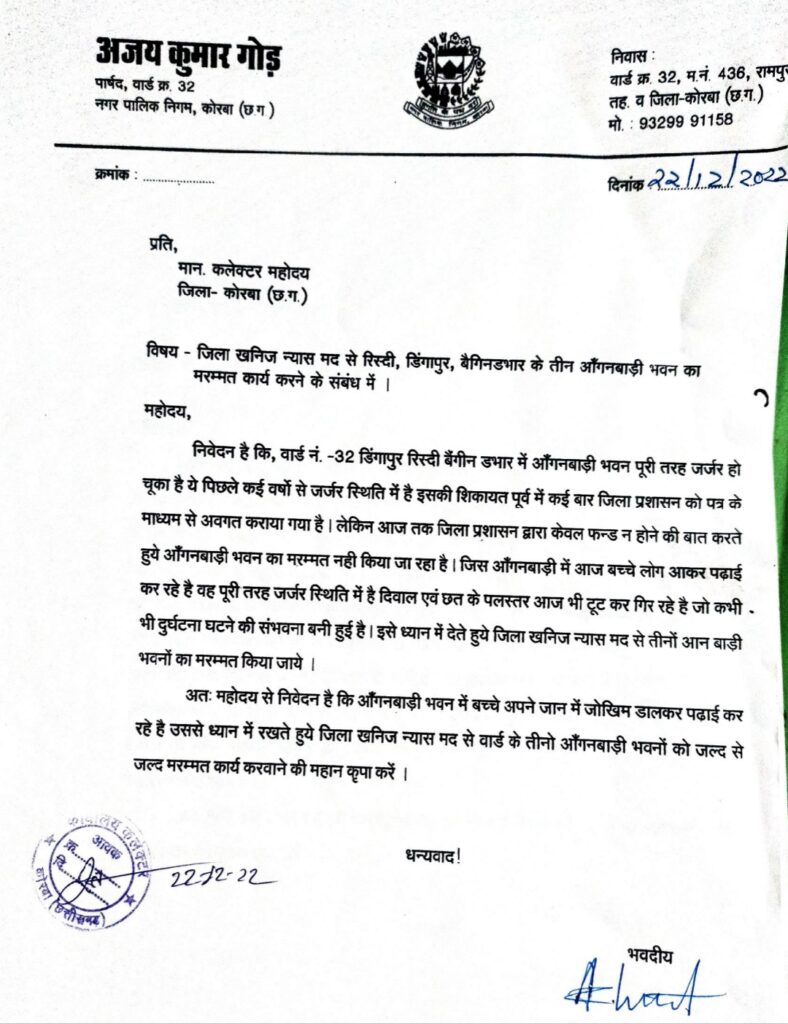 अजय कुमार गोड़
पार्षद, वार्ड क्र. 32
नगर पालिक निगम, कोरबा (छ.ग.)
निवास :
वार्ड क्र. 32, म.नं. 436, रामपुर
तह. व जिला-कोरबा (छ.ग.)
मो. : 93299 91158
क्रमांक : ....................
दिनांक 22/12/2022
प्रति,
मान. कलेक्टर महोदय
जिला- कोरबा (छ.ग.)
विषय - जिला खनिज न्यास मद से रिस्दी, डिंगापुर, बैगिनडभार के तीन आँगनबाड़ी भवन का
मरम्मत कार्य करने के संबंध में ।
महोदय,
निवेदन है कि, वार्ड नं. -32 डिंगापुर रिस्दी बैंगीन डभार में आँगनबाड़ी भवन पूरी तरह जर्जर हो
चूका है ये पिछले कई वर्षो से जर्जर स्थिति में है इसकी शिकायत पूर्व में कई बार जिला प्रशासन को पत्र के
माध्यम से अवगत कराया गया है। लेकिन आज तक जिला प्रशासन द्वारा केवल फन्ड न होने की बात करते
हुये आँगनबाड़ी भवन का मरम्मत नही किया जा रहा है। जिस आँगनबाड़ी में आज बच्चे लोग आकर पढाई
कर रहे है वह पूरी तरह जर्जर स्थिति में है दिवाल एवं छत के पलस्तर आज भी टूट कर गिर रहे है जो कभी
भी दुर्घटना घटने की संभवना बनी हुई है। इसे ध्यान में देते हुये जिला खनिज न्यास मद से तीनों आन बाड़ी
भवनों का मरम्मत किया जाये ।
अतः महोदय से निवेदन है कि आँगनबाड़ी भवन में बच्चे अपने जान में जोखिम डालकर पढाई कर
रहे है उससे ध्यान में रखते हुये जिला खनिज न्यास मद से वार्ड के तीनो आँगनबाड़ी भवनों को जल्द से
जल्द मरम्मत कार्य करवाने की महान कृपा करें ।
धन्यवाद!
कार्यालय कलेक्टर
आवक
क्र.
दि.
कोरबा (छत्तीसगढ़)
22-12-22
भवदीय